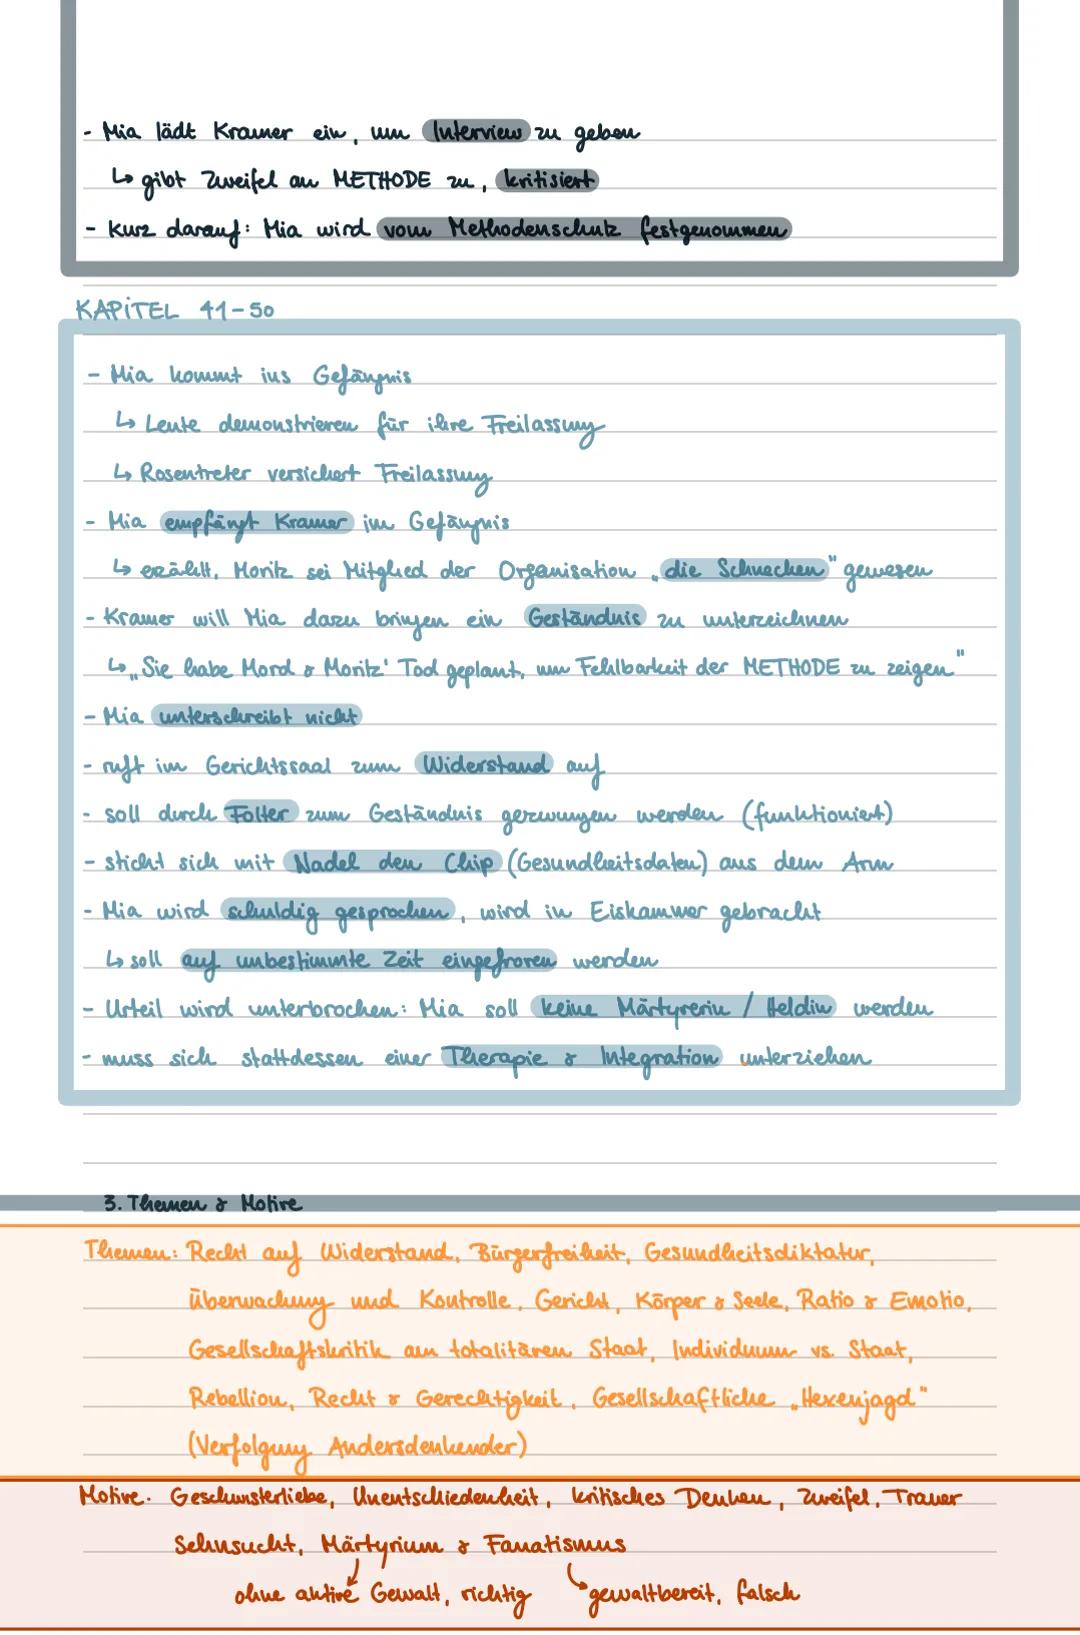 - Mia lädt Kramer ein, um Interview zu geben
↳ gibt Zweifel an METHODE zu, kritisiert
- kurz darauf: Mia wird vom Methodenschutz festgenommen
KAPİTEL 41-50
- Mia kommt ins Gefängnis
↳ Leute demonstrieren für ihre Freilassung
↳ Rosentreter versichert Freilassung
- Mia empfängt Kramer im Gefängnis
↳ erzählt, Moritz sei Mitglied der Organisation „die Schnecken" gewesen
- Kramer will Mia dazu bringen ein Geständnis zu unterzeichnen
↳ „Sie habe Mord & Moritz' Tod geplant, um Fehlbarkeit der METHODE zu zeigen"
- Mia unterschreibt nicht
- ruft im Gerichtssaal zum Widerstand auf
- soll durch Folter zum Geständnis gezwungen werden (funktioniert)
- sticht sich mit Nadel den Chip (Gesundheitsdaten) aus dem Arm
- Mia wird schuldig gesprochen, wird in Eiskammer gebracht
↳ soll auf unbestimmte Zeit eingefroren werden
- Urteil wird unterbrochen: Mia soll keine Märtyrerin / Heldin werden
- muss sich stattdessen einer Therapie & Integration unterziehen
3. Themen & Motive
Themen: Recht auf Widerstand, Bürgerfreiheit, Gesundheitsdiktatur,
Überwachung und Kontrolle, Gericht, Körper & Seele, Ratio & Emotio,
Gesellschaftskritik am totalitären Staat, Individuum vs. Staat,
Rebellion, Recht & Gerechtigkeit, Gesellschaftliche „Hexenjagd"
(Verfolgung Andersdenkender)
Motive: Geschwisterliebe, Unentschiedenheit, kritisches Denken, Zweifel, Trauer
Sehnsucht, Märtyrium & Fanatismus
ohne aktive Gewalt, richtig ↳ gewaltbereit, falsch